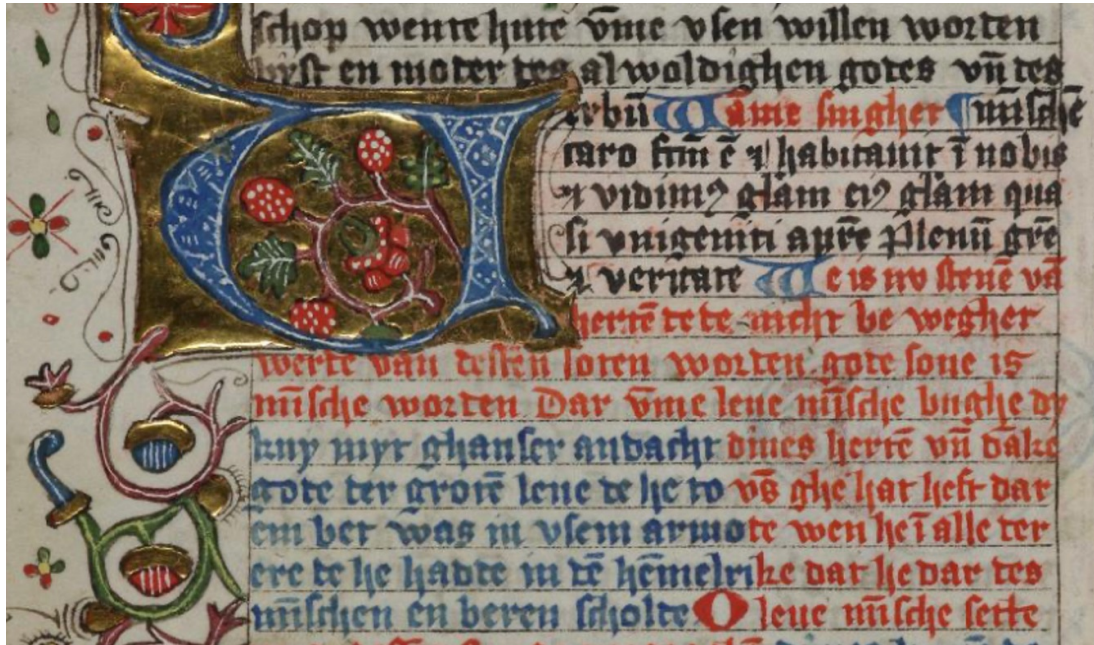 schop wente hute v̄me vsen willen worten
byst en moter tes al woldighen gotes vn̄ tes
V erbū Wāme singhet ¶ mīschē
caro ꝼtm̄ ē ⁊ habitauit ī nobis
⁊ vidimꝰ gl̄am eiꝰ gl̄am qua
si vnigeniti a pr̄e Plenū gr̄e
⁊ veritate We is nv stene vā
herten̄ te te nicht be wegher
werte van tessen soten worten gote sone is
mīsche worten Dar v̄me leue mīsche bughe dy
kny myt ghanser andacht dines hertē vn̄ dāke
gote ter grotē leue te he to vs̄ ghe hat heft dar
em bet was in vsem armote wen he ī alle ter
ere te he hadte in tē hēmelrike dat he dar tes
mīschen en beren scholte O leue mīsche sette